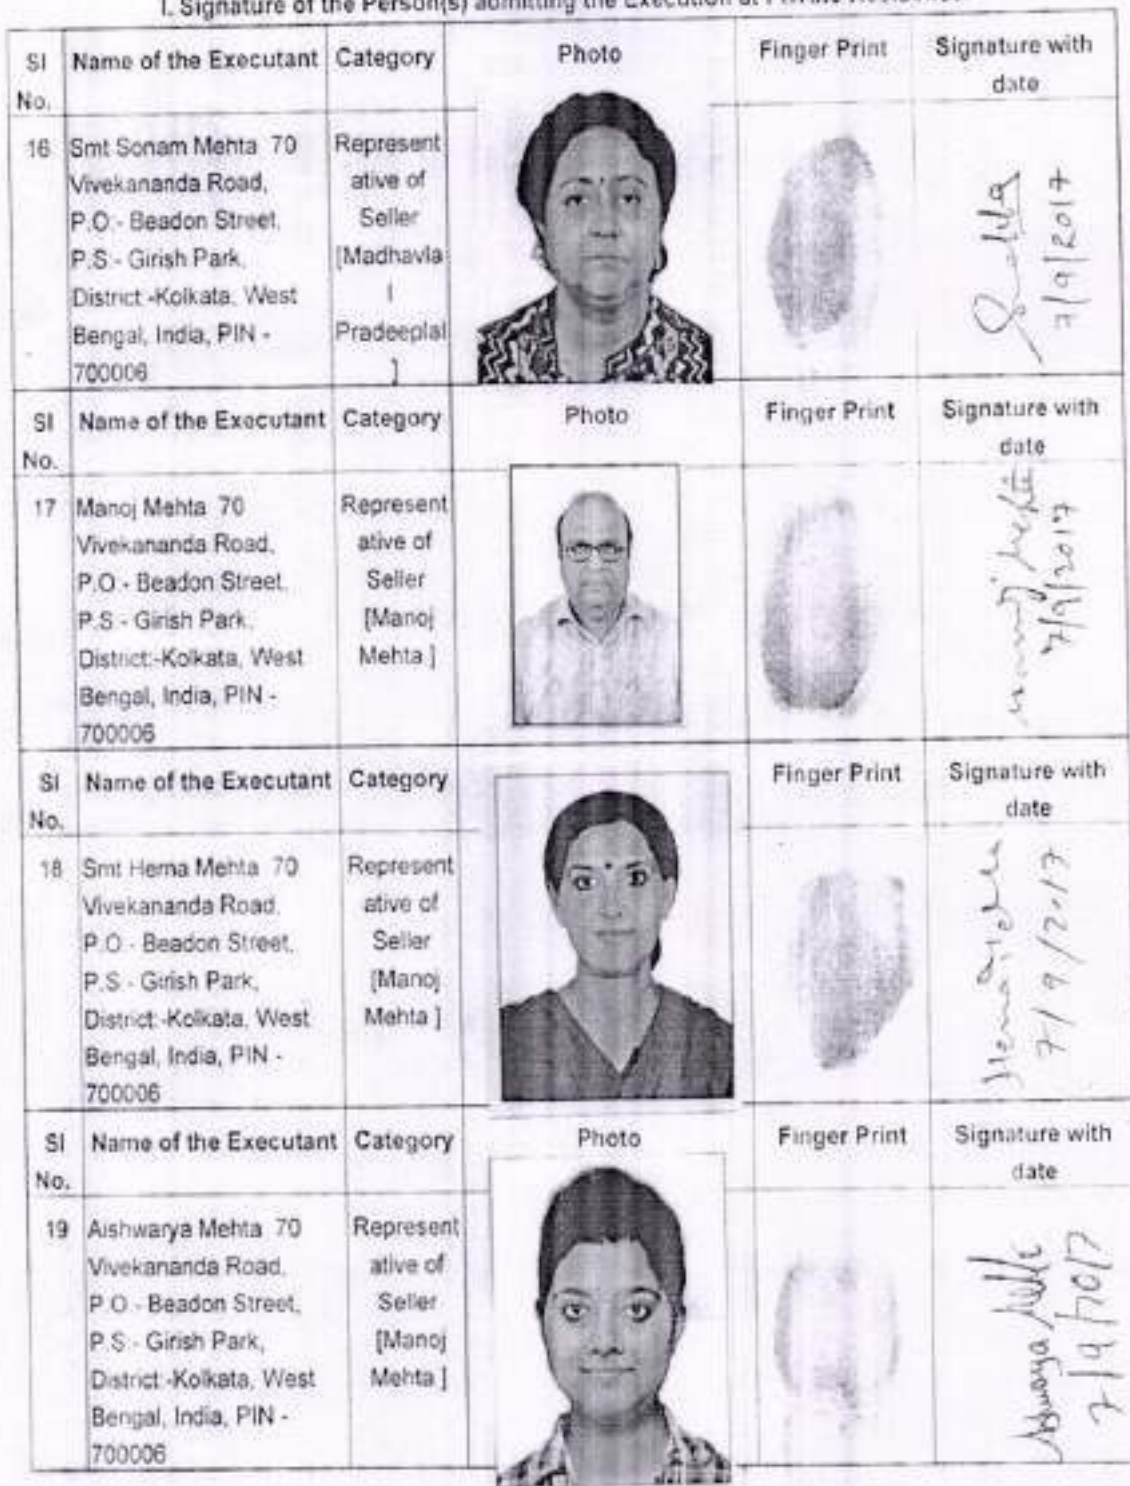 I. Signature of the Person(s) admitting the Execution at Private Residence
Sl No. Name of the Executant Category Photo Finger Print Signature with date
16 Smt Sonam Mehta 70
Vivekananda Road,
P.O:- Beadon Street,
P.S:- Girish Park,
District:-Kolkata, West
Bengal, India, PIN -
700006
Represent
ative of
Seller
[Madhavla
l
Pradeeplal
]
7/9/2017
Sl No. Name of the Executant Category Photo Finger Print Signature with date
17 Manoj Mehta 70
Vivekananda Road,
P.O:- Beadon Street,
P.S:- Girish Park,
District:-Kolkata, West
Bengal, India, PIN -
700006
Represent
ative of
Seller
[Manoj
Mehta ]
Manoj Mehta
7/9/2017
Sl No. Name of the Executant Category Finger Print Signature with date
18 Smt Hema Mehta 70
Vivekananda Road,
P.O:- Beadon Street,
P.S:- Girish Park,
District:-Kolkata, West
Bengal, India, PIN -
700006
Represent
ative of
Seller
[Manoj
Mehta ]
Hema Mehta
7/9/2017
Sl No. Name of the Executant Category Photo Finger Print Signature with date
19 Aishwarya Mehta 70
Vivekananda Road,
P.O:- Beadon Street,
P.S:- Girish Park,
District:-Kolkata, West
Bengal, India, PIN -
700006
Represent
ative of
Seller
[Manoj
Mehta ]
7/9/2017